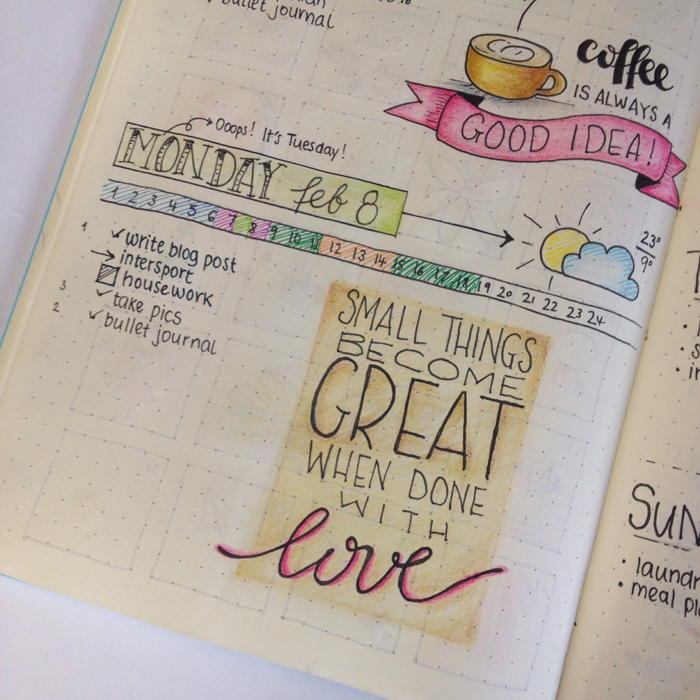 bullet journal
coffee
IS ALWAYS A
GOOD IDEA!
Ooops! It's Tuesday!
MONDAY feb 8
1 2 3 4 5 6 7 8 9 10 11 12 13 14 15 16 17 18 19 20 21 22 23 24
23°
9°
1 write blog post
intersport
housework
3 take pics
2 bullet journal
SMALL THINGS
BECOME
GREAT
WHEN DONE
WITH
love